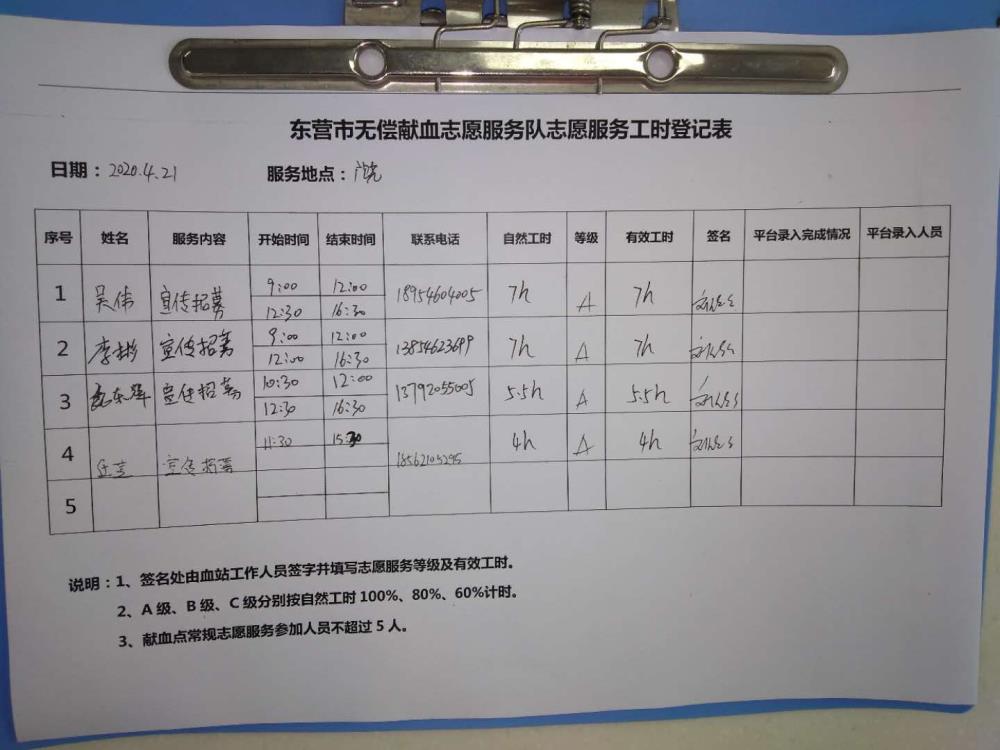 东营市无偿献血志愿服务队志愿服务工时登记表
日期：2020.4.21 服务地点：
序号 姓名 服务内容 开始时间 结束时间 联系电话 自然工时 等级 有效工时 签名 平台录入完成情况 平台录入人员
1 吴伟 宣传招募 9:00 12:00 18954604005 7h A 7h
12:30 16:30
2 李彬 宣传招募 9:00 12:00 13854623699 7h A 7h
12:00 16:30
3 宣传招募 10:30 12:00 13792055005 5.5h A 5.5h
12:30 16:30
4 宣传招募 11:30 15:30 18562105295 4h A 4h
5
说明：1、签名处由血站工作人员签字并填写志愿服务等级及有效工时。
2、A 级、B 级、C 级分别按自然工时 100%、80%、60%计时。
3、献血点常规志愿服务参加人员不超过 5 人。